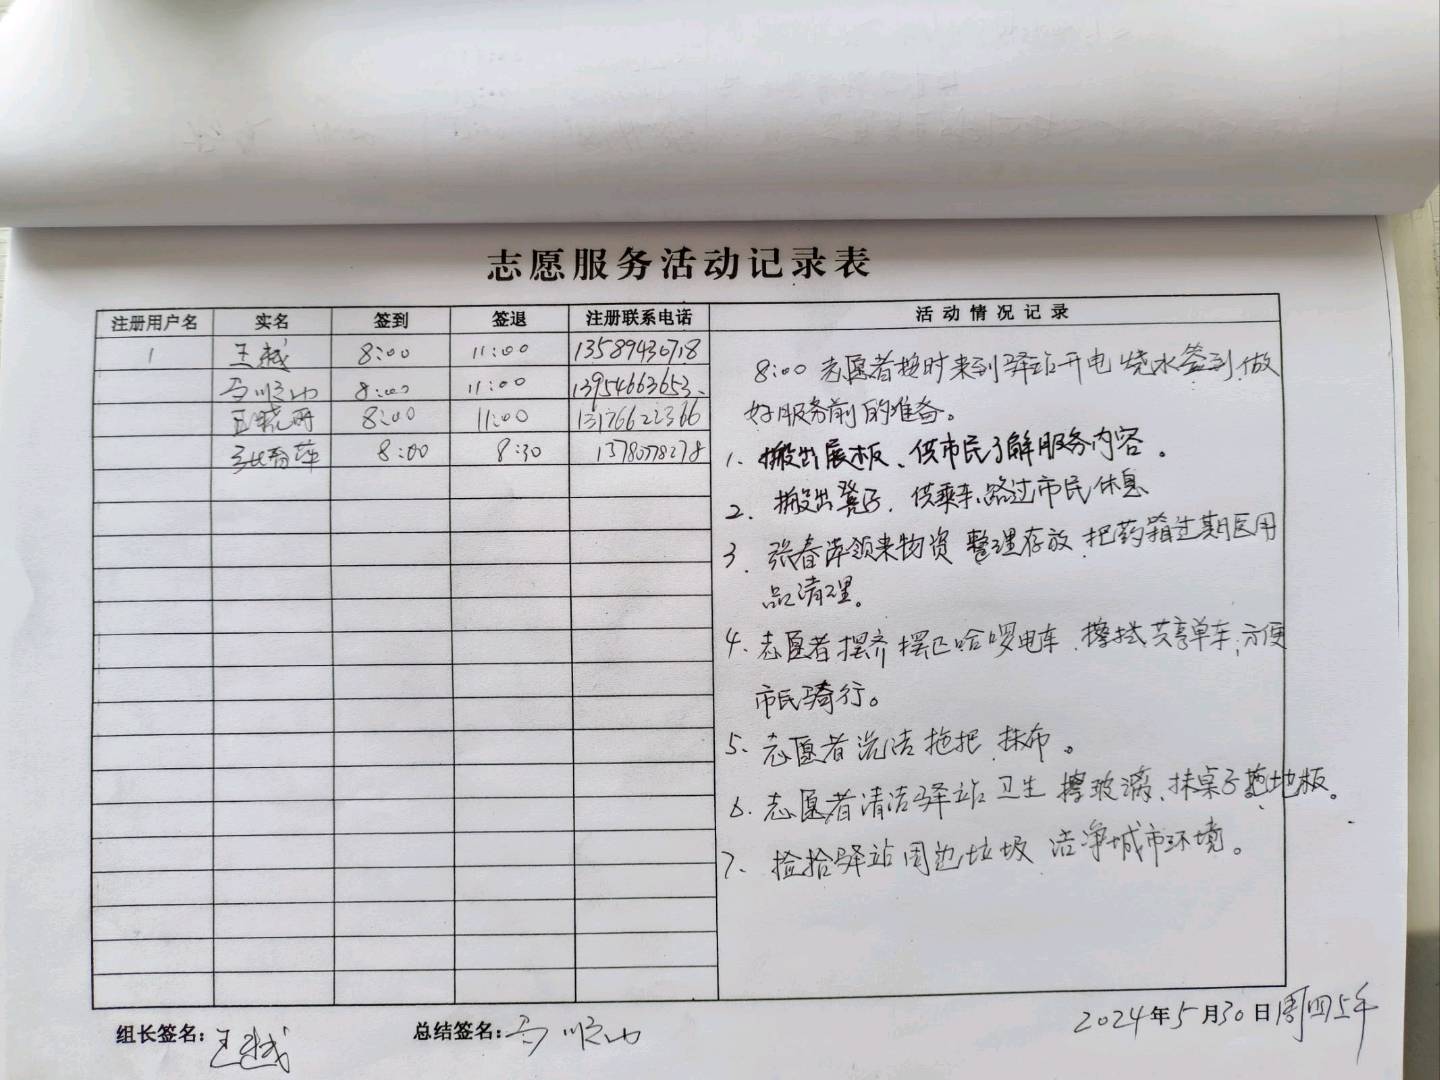 志愿服务活动记录表
注册用户名 实名 签到 签退 注册联系电话 活动情况记录
1 王越 8:00 11:00 13589430718
8:00 11:00 13954663653
8:00 11:00 13176622366
张春萍 8:00 8:30 13780778278
8:00 志愿者按时来到驿站开电烧水签到做
好服务前的准备。
1. 搬出展板、供市民了解服务内容。
2. 搬出凳子，供乘车、路过市民休息
3. 张春萍领来物资 整理存放 把药箱过期医用
品清理。
4. 志愿者摆齐 摆正哈啰电车、擦拭共享单车，方便
市民骑行。
5. 志愿者洗洁拖把 抹布。
6. 志愿者清洁驿站卫生 擦玻璃、抹桌子拖地板。
7. 捡拾驿站周边垃圾 洁净城市环境。
组长签名：王越 总结签名： 2024年5月30日周四上午